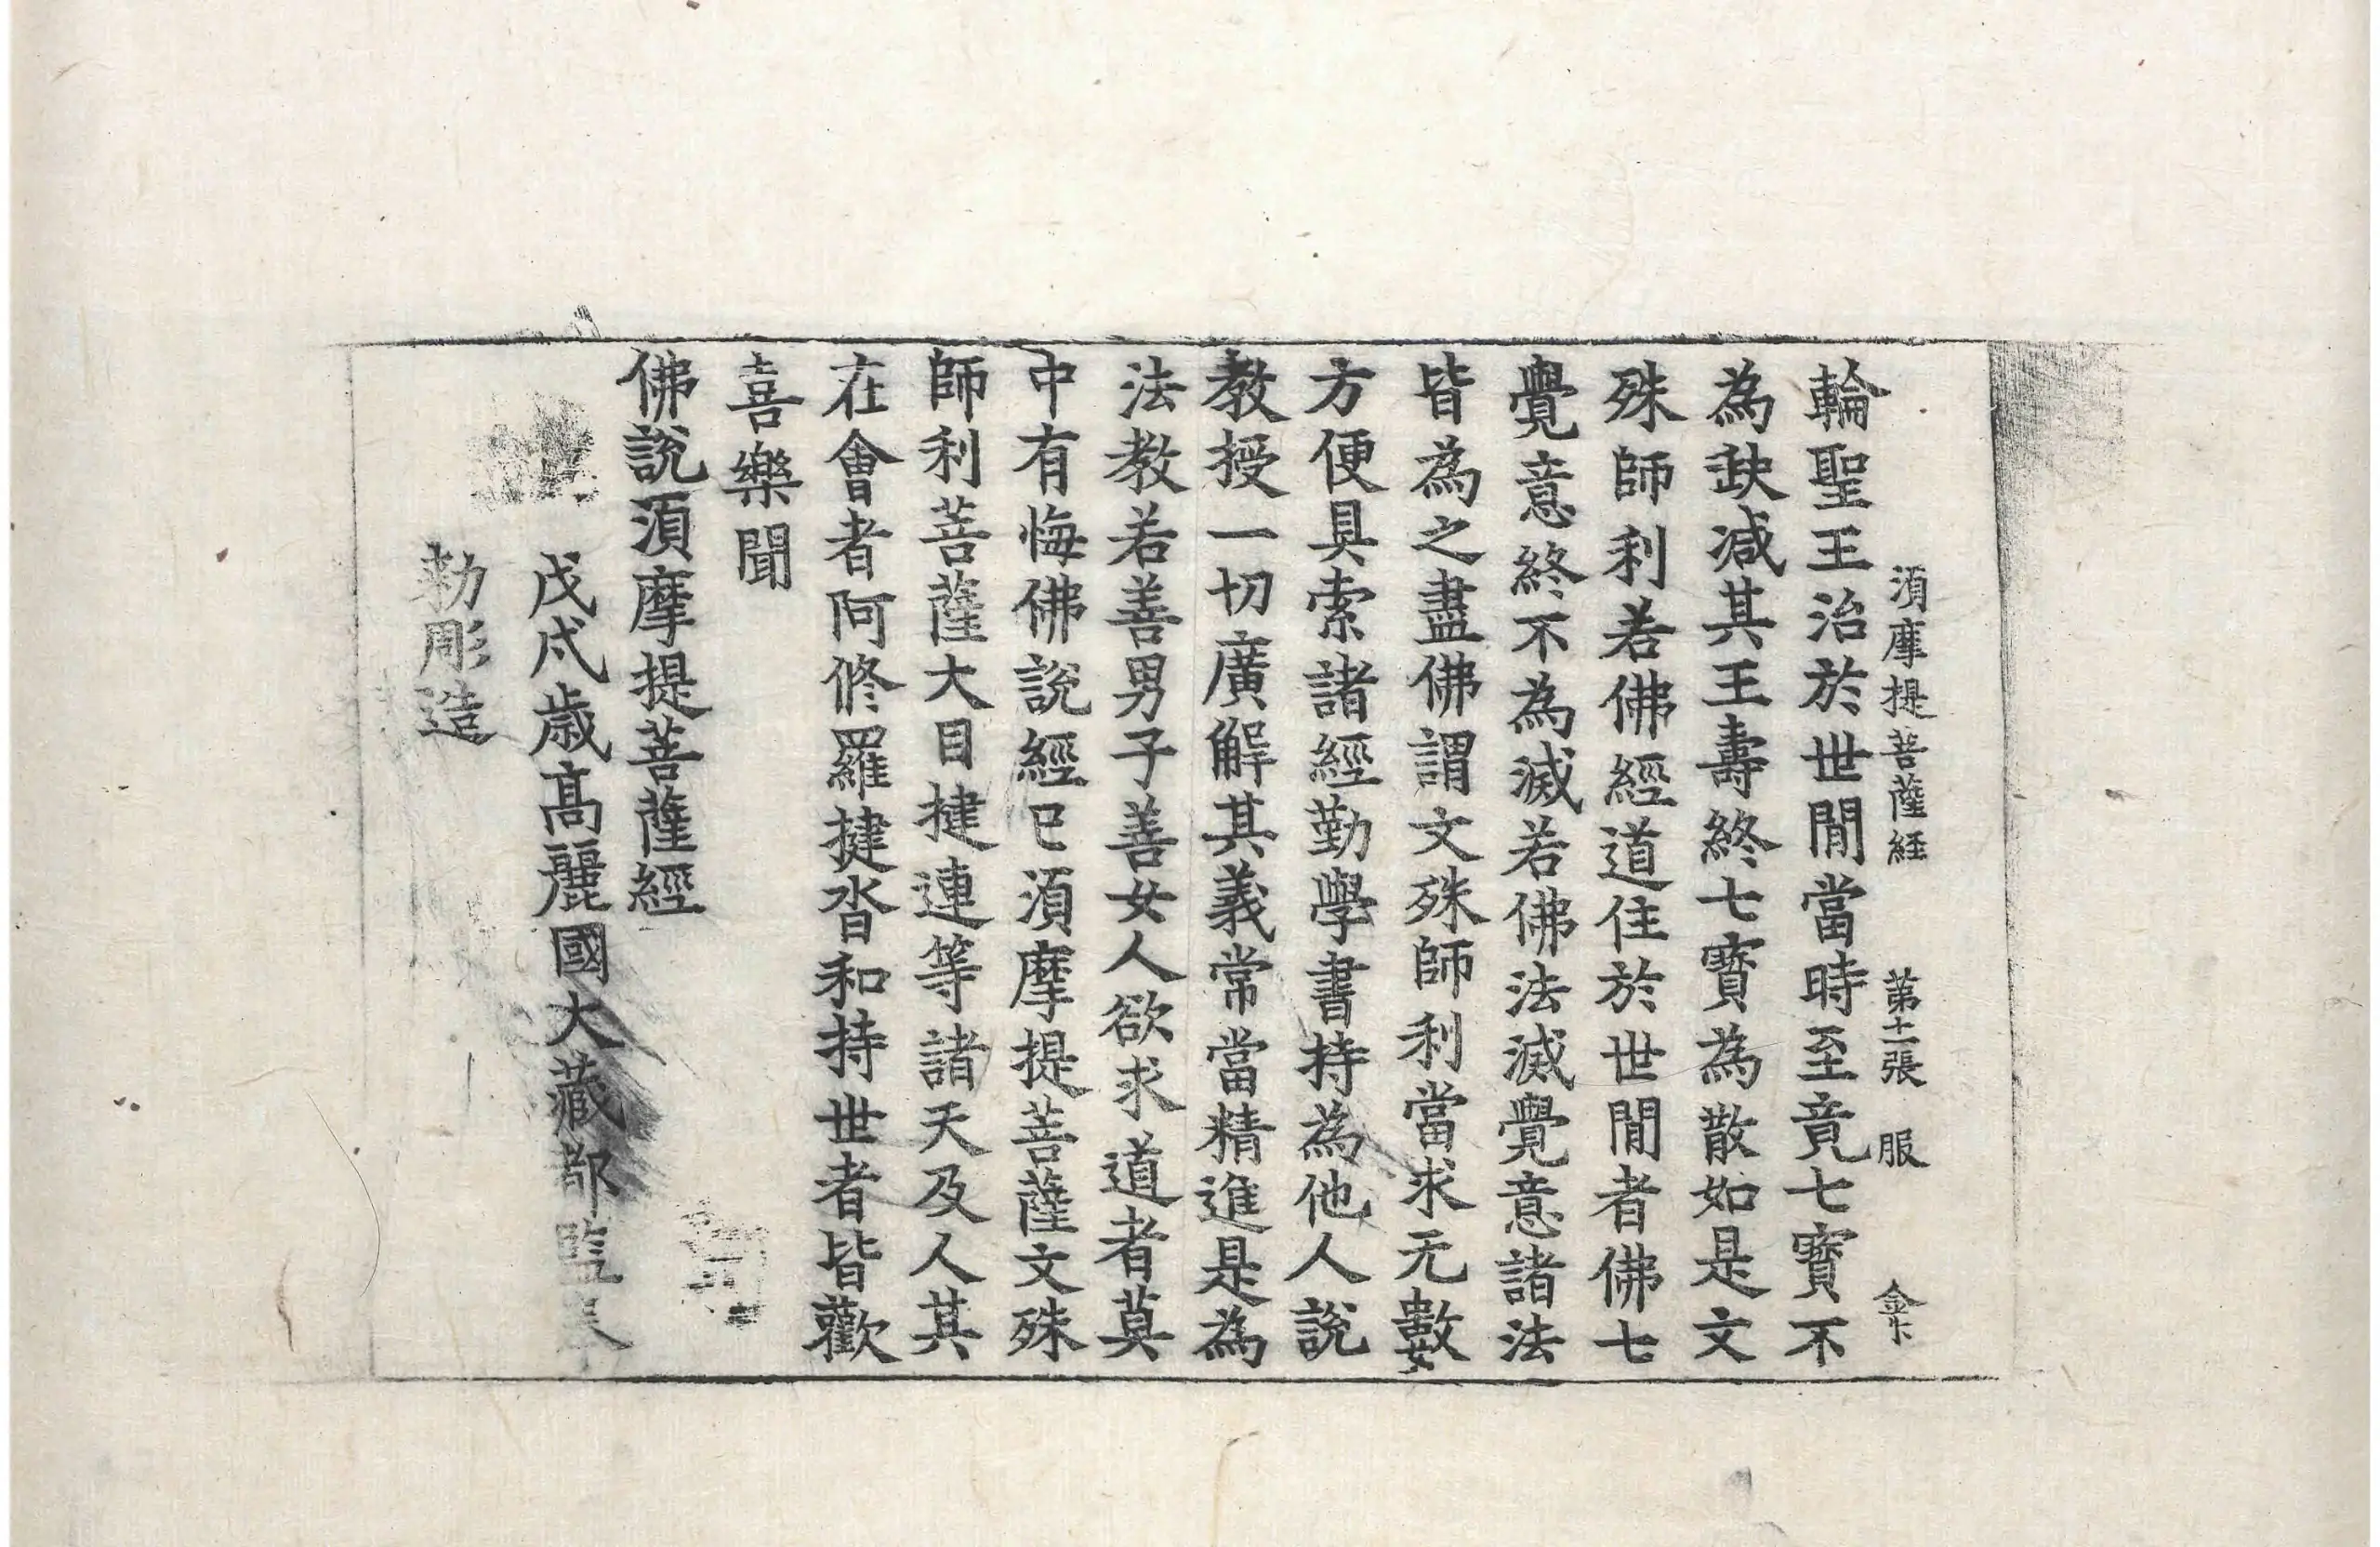 湏摩提菩薩経 第十二張 服
輪聖王治於世閒當時至竟七寶不
為缺減其王壽終七寶為散如是文
殊師利若佛經道住於世閒者佛七
覺意終不為滅若佛法滅覺意諸法
皆為之盡佛謂文殊師利當求无數
方便具索諸經勤學書持為他人說
教授一切廣解其義常當精進是為
法教若善男子善女人欲求道者莫
中有悔佛說經已湏摩提菩薩文殊
師利菩薩大目揵連等諸天及人其
在會者阿修羅揵沓和持世者皆歡
喜樂聞
佛說湏摩提菩薩經
戊戌歲高麗國大藏都監奉
勑彫造